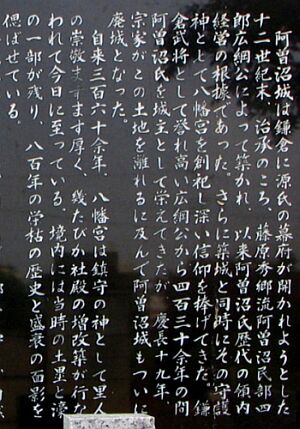 阿曽沼城は鎌倉に源氏の幕府が開かれようとした
十二世紀末、治承のころ、藤原秀郷流阿曽沼民部四
郎広綱公によって築かれ、以来阿曽沼氏歴代の領内
経営の根據であった。さらに築城と同時にその守護
神として八幡宮を創祀し深い信仰を捧げてきた。鎌
倉武将として誉れ高い広綱公から四百三十余年の間
阿曽沼氏を城主として栄えてきたが、慶長十九年
宗家がこの土地を離れるに及んで阿曽沼城もついに
廃城となった。
自来三百六十余年、八幡宮は鎮守の神として里人
の崇敬ますます厚く、幾たびか社殿の増改築が行な
われて今日に至っている。境内には当時の土塁と濠
の一部が残り、八百年の学𡴭の歴史と盛衰の面影を
偲ばせている。